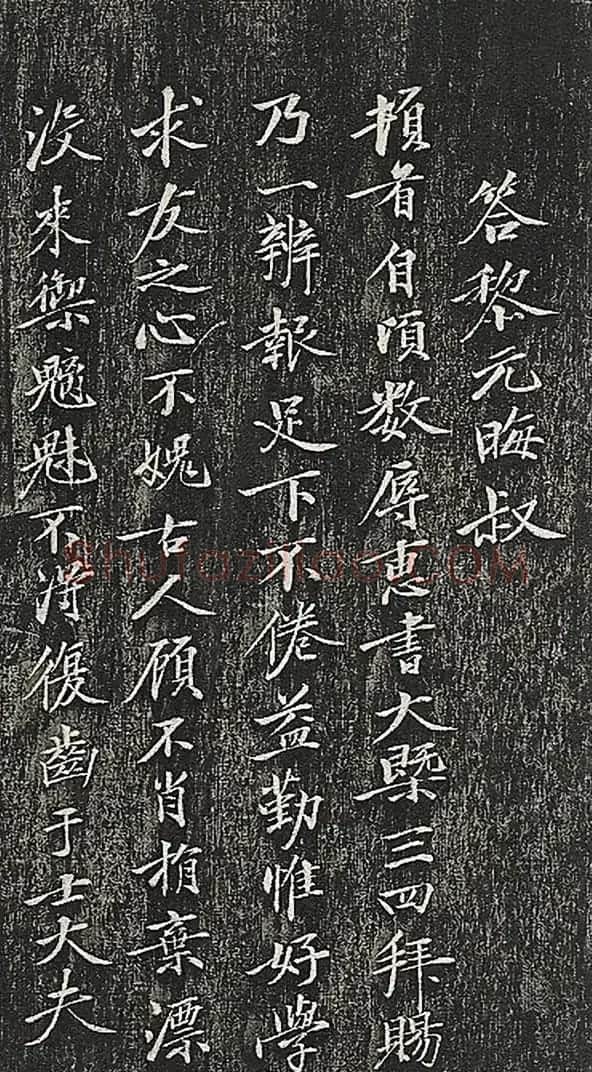 答黎元晦叔
頓首自頃数辱惠書大槩三四拜賜
乃一辨報足下不倦益勤惟好學
求友之心不媿古人顧不肖捐棄漂
没來禦魑魅不得復齒于士大夫
shufaziliao.COM